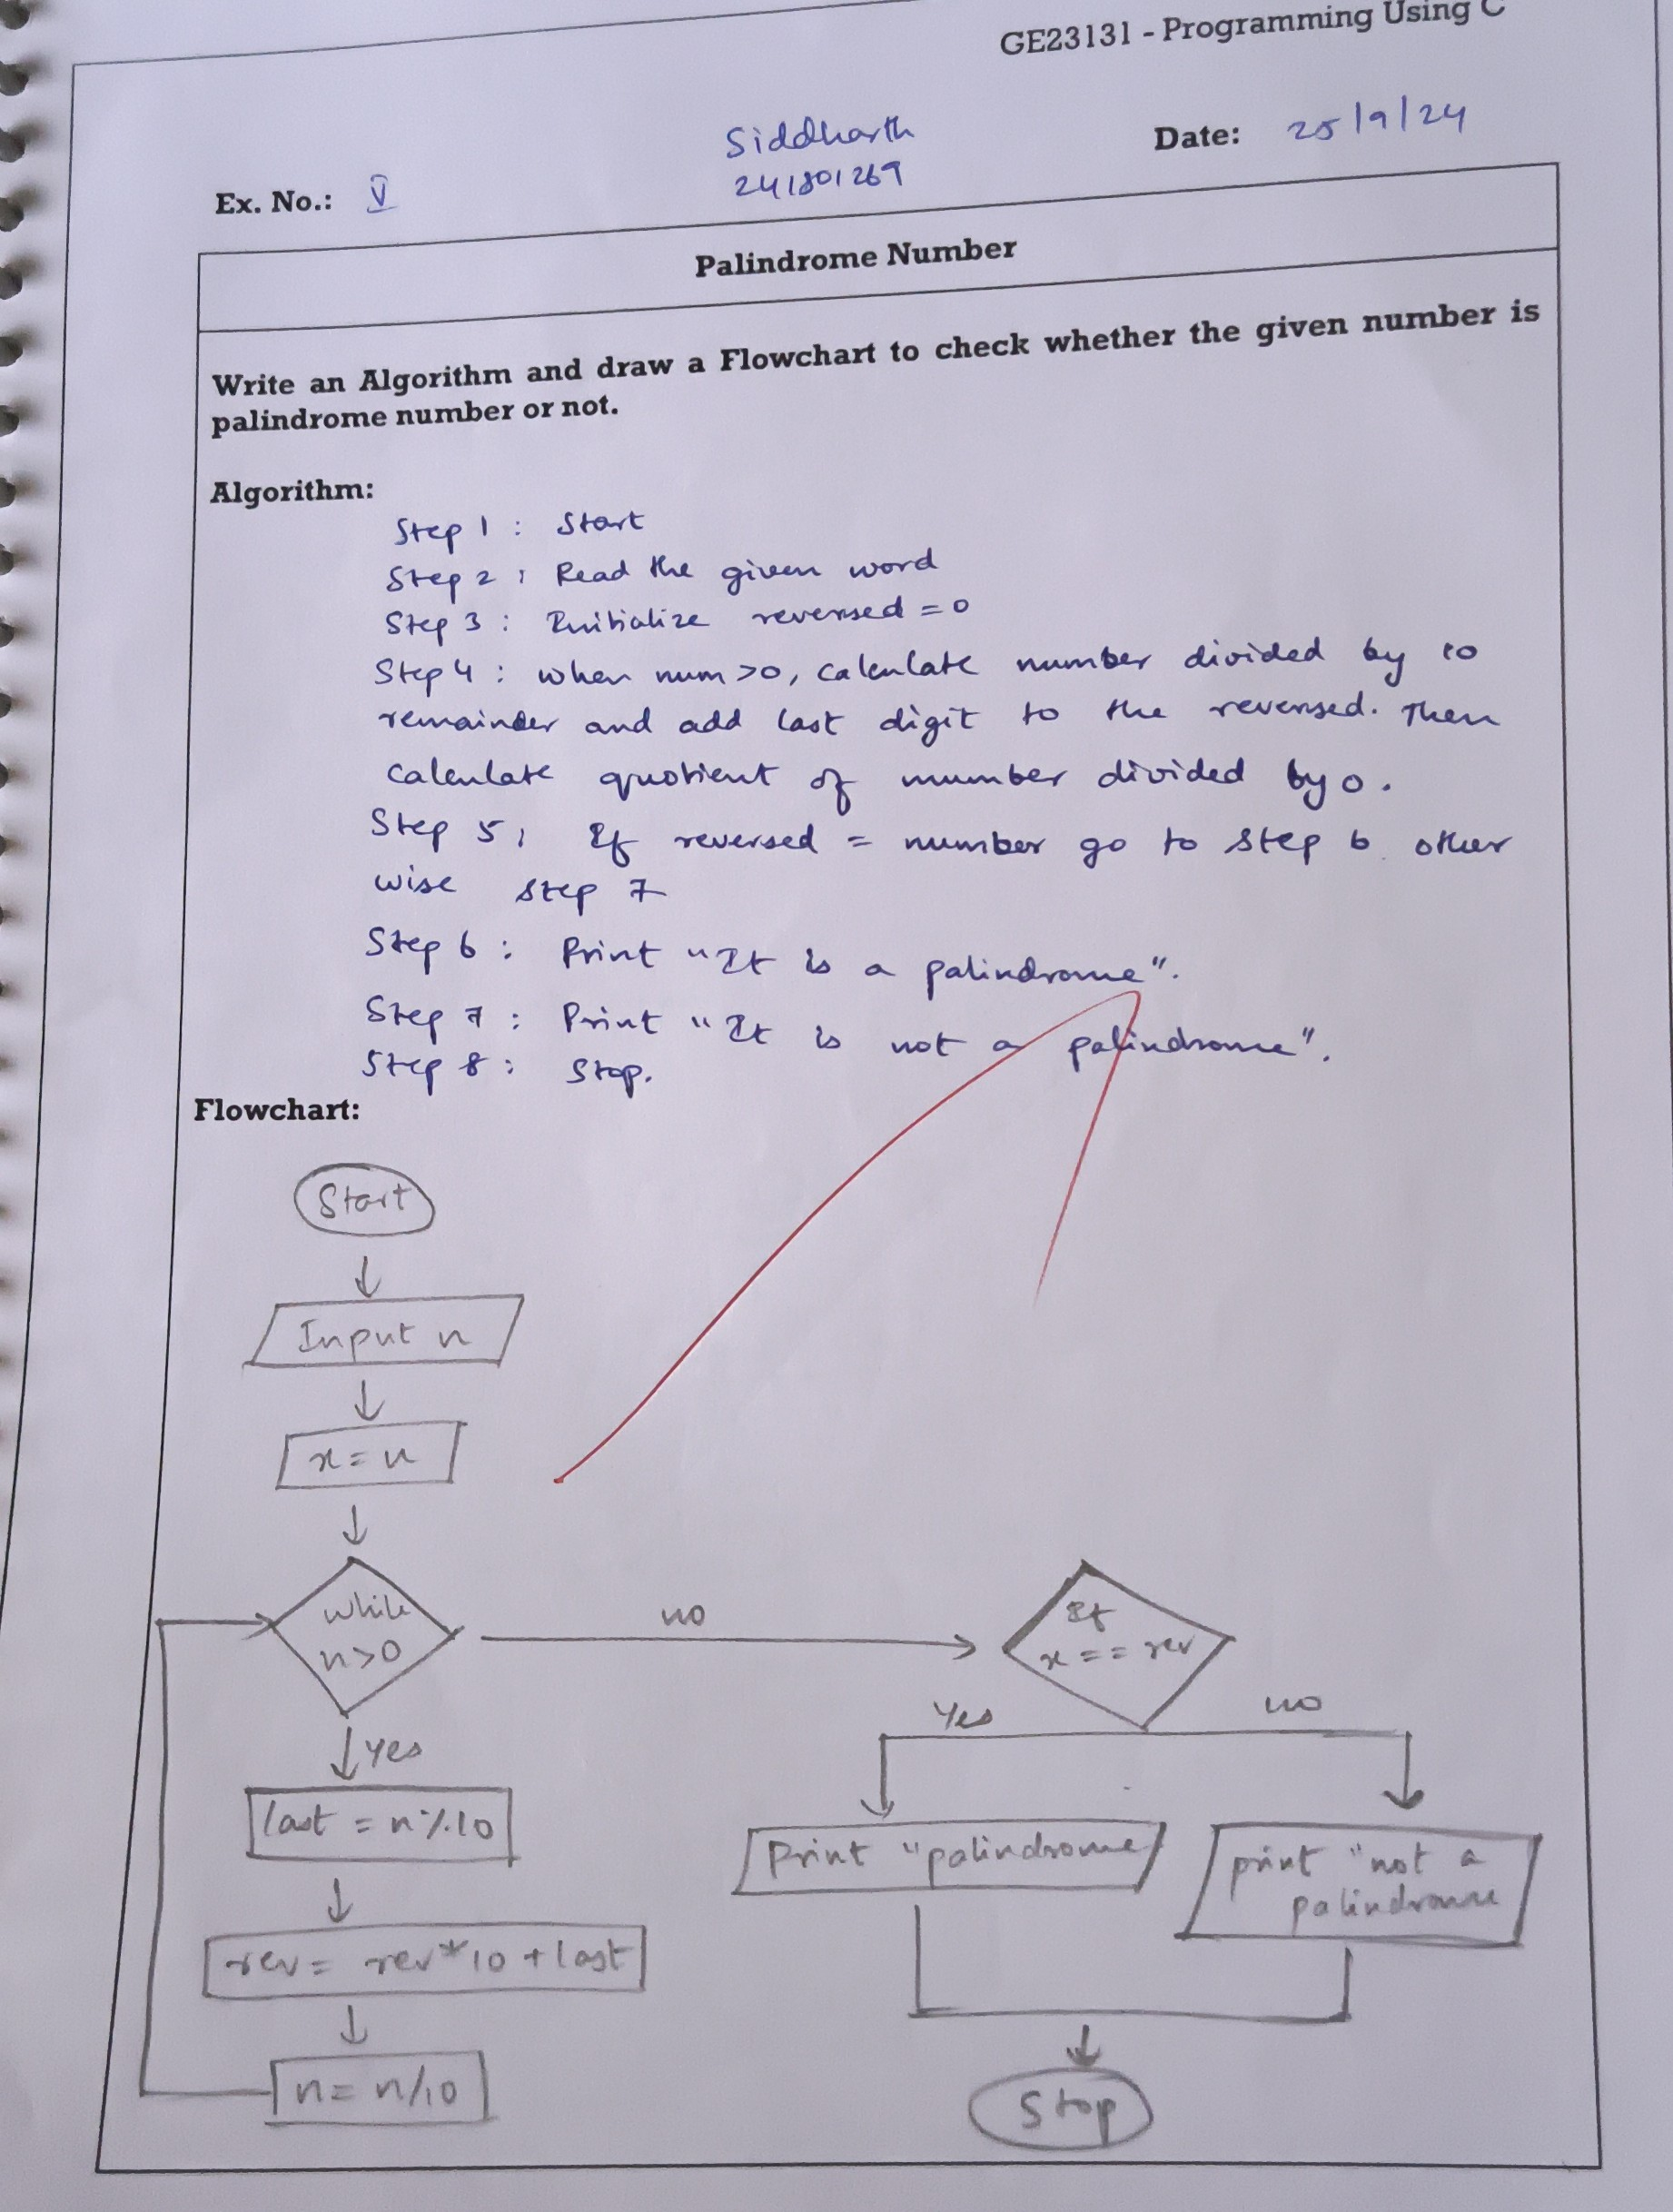 GE23131 - Programming Using C
Siddharth
Date: 25/9/24
241801269
Ex. No.: V
Palindrome Number
Write an Algorithm and draw a Flowchart to check whether the given number is
palindrome number or not.
Algorithm:
Step 1 : Start
Step 2 : Read the given word
Step 3 : Initialize reversed = 0
Step 4 : when num >0, calculate number divided by 10
remainder and add last digit to the reversed. Then
calculate quotient of number divided by 0.
Step 5 : If reversed = number go to step 6 other
wise step 7
Step 6 : Print "It is a palindrome".
Step 7 : Print "It is not a palindrome".
Step 8 : Stop.
Flowchart:
Start
Input n
x = n
while
n>0
no
If
x == rev
Yes
no
yes
last = n%10
Print "palindrome
print "not a
palindrome
rev = rev*10 + last
n = n/10
Stop